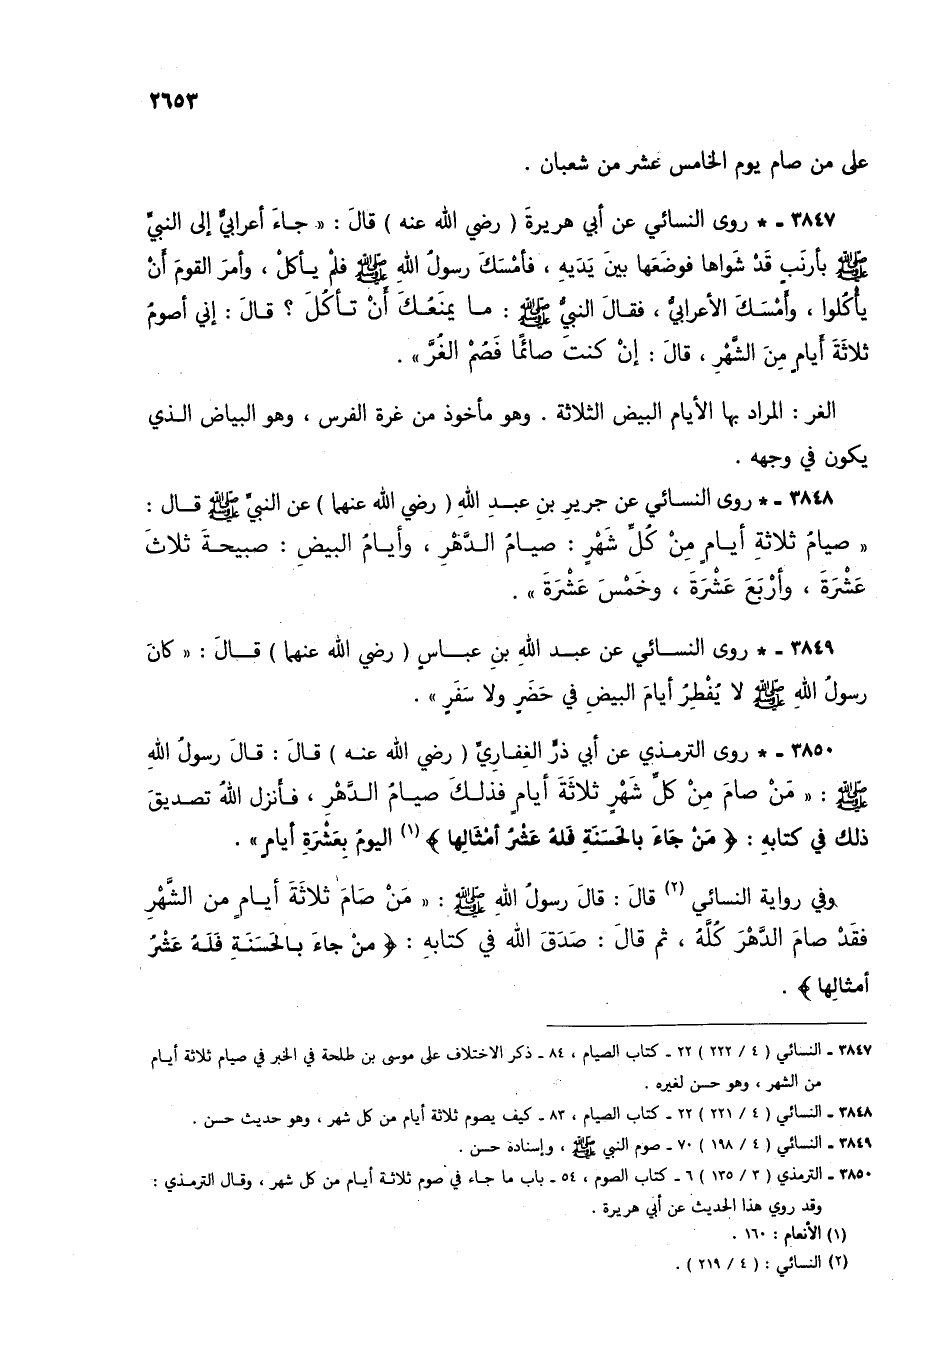 ٢٦٥٣
على من صام يوم الخامس عشر من شعبان .
٣٨٤٧ ـ * روى النسائي عن أبي هريرةَ ( رضي الله عنه ) قالَ : « جاءَ أعرابيٌّ إلى النبيِّ
ﷺ بأرنَبٍ قَدْ شَواها فوضَعَها بينَ يَدَيهِ ، فأمْسَكَ رسولُ اللهِ ﷺ فلمْ يأكلْ ، وأمرَ القومَ أنْ
يأكُلوا ، وأَمْسَكَ الأعرابيُّ ، فقالَ النبيُّ ﷺ : ما يمنَعُكَ أَنْ تأكُلَ ؟ قالَ : إني أصومُ
ثلاثَةَ أَيامٍ مِنَ الشَّهْرِ ، قالَ : إنْ كنتَ صائمًا فَصُمْ الغُرَّ » .
الغر : المراد بها الأيام البيض الثلاثة . وهو مأخوذ من غرة الفرس ، وهو البياض الذي
يكون في وجهه .
٣٨٤٨ ـ * روى النسائي عن جريرِ بنِ عبدِ اللهِ ( رضي الله عنهما ) عن النبيِّ ﷺ قال :
« صيامُ ثلاثةِ أيامٍ مِنْ كُلِّ شَهْرٍ : صيامُ الدَّهْرِ ، وأيامُ البيضِ : صبيحةَ ثلاثَ
عَشْرَةَ ، وأرْبَعَ عَشْرَةَ ، وخَمْسَ عَشْرَةَ » .
٣٨٤٩ ـ * روى النسائي عن عبد اللهِ بنِ عباسٍ ( رضي الله عنهما ) قالَ : « كانَ
رسولُ اللهِ ﷺ لا يُفْطِرُ أيامَ البيضِ في حَضَرٍ ولا سَفَرٍ » .
٣٨٥٠ ـ * روى الترمذي عن أبي ذرٍّ الغِفاريِّ ( رضي الله عنه ) قالَ : قالَ رسولُ اللهِ
ﷺ : « مَنْ صامَ مِنْ كلِّ شَهْرٍ ثلاثَةَ أيامٍ فذلكَ صيامُ الدَّهْرِ ، فأنزل اللهُ تصديقَ
ذلك في كتابهِ : ﴿ مَنْ جَاءَ بالحَسَنَةِ فَلهُ عَشْرُ أمْثَالِها ﴾ (١) اليومُ بِعَشْرَةِ أيامٍ » .
وفي رواية النسائي (٢) قالَ : قالَ رسولُ اللهِ ﷺ : « مَنْ صَامَ ثلاثَةَ أيامٍ من الشَّهْرِ
فقَدْ صامَ الدَّهْرَ كُلَّهُ ، ثم قالَ : صَدَقَ الله في كتابهِ : ﴿ منْ جاءَ بالحَسَنَةِ فَلَهُ عَشْرُ
أمثالِها ﴾ .
٣٨٤٧ ـ النسائي ( ٤ / ٢٢٢ ) ٢٢ ـ كتاب الصيام ، ٨٤ ـ ذكر الاختلاف على موسى بن طلحة في الخبر في صيام ثلاثة أيام
من الشهر ، وهو حسن لغيره .
٣٨٤٨ ـ النسائي ( ٤ / ٢٢١ ) ٢٢ ـ كتاب الصيام ، ٨٣ ـ كيف يصوم ثلاثة أيام من كل شهر ، وهو حديث حسن .
٣٨٤٩ ـ النسائي ( ٤ / ١٩٨ ) ٧٠ ـ صوم النبي ﷺ ، وإسناده حسن .
٣٨٥٠ ـ الترمذي ( ٣ / ١٣٥ ) ٦ ـ كتاب الصوم ، ٥٤ ـ باب ما جاء في صوم ثلاثة أيام من كل شهر ، وقال الترمذي :
وقد روي هذا الحديث عن أبي هريرة .
(١) الأنعام : ١٦٠ .
(٢) النسائي : ( ٤ / ٢١٩ ) .